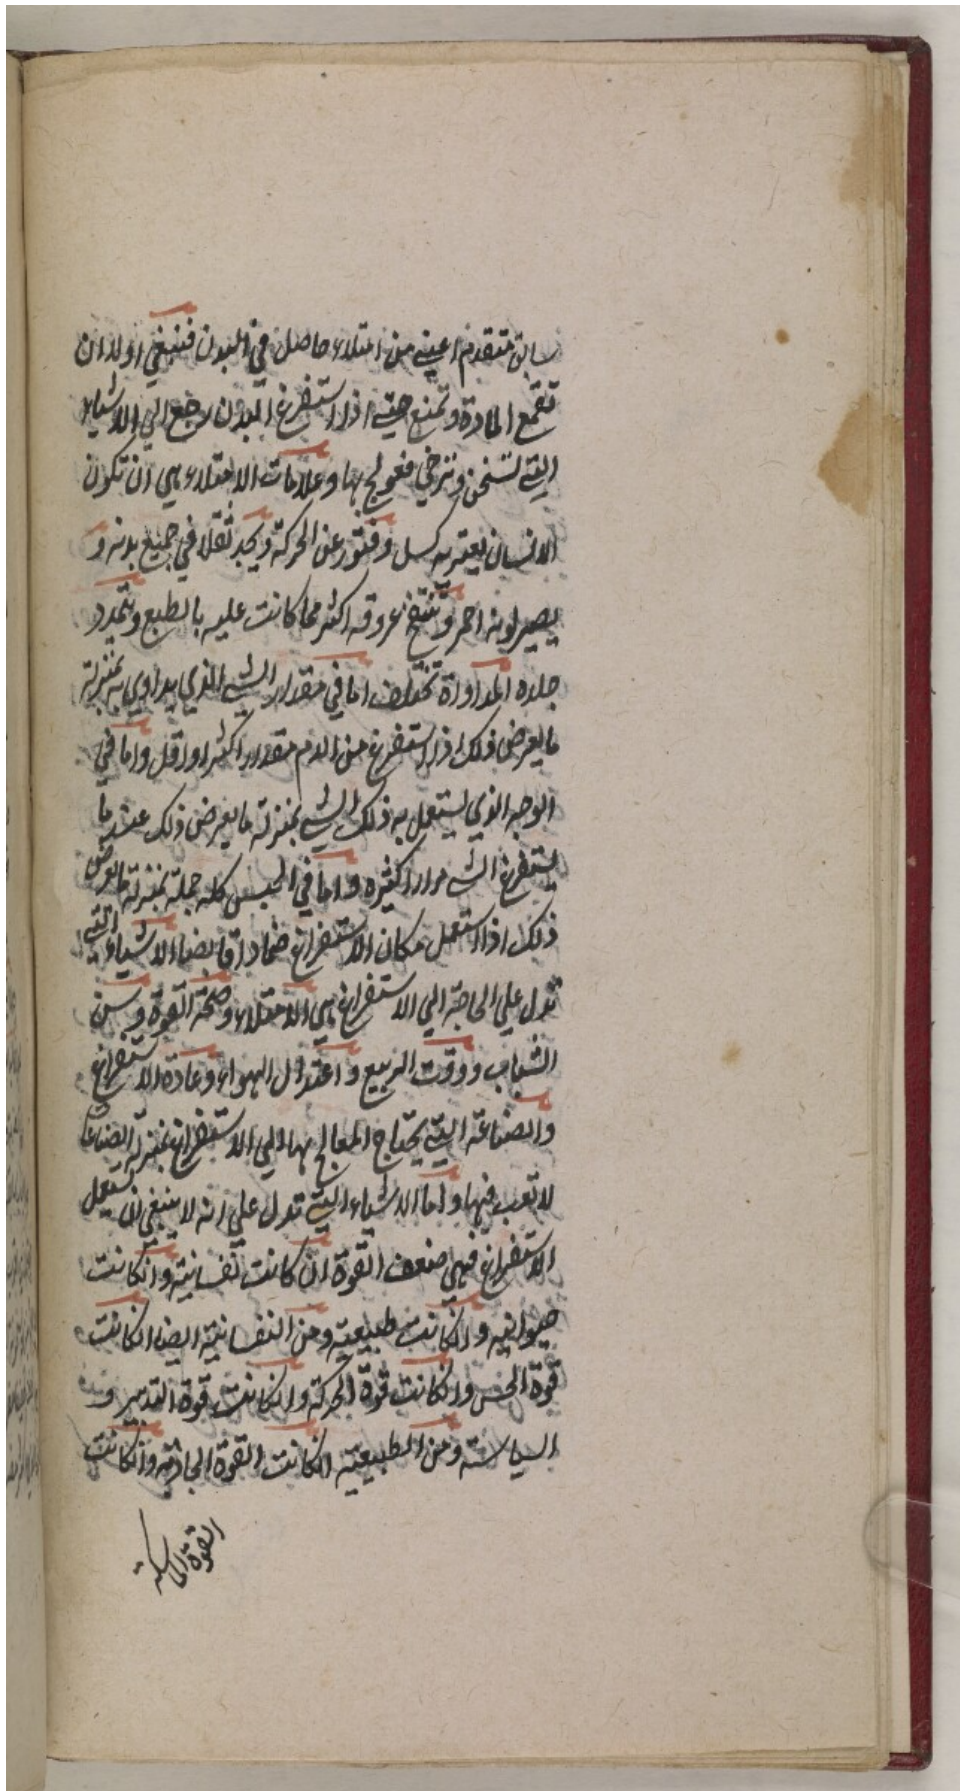 سابق متقدم اعني من امتلاء حاصل في البدن فينبغي اولا ان
تقمع المادة وتمنع حتى اذا استفرغ البدن رجع الي الاشياء
التي تسخن وترخي فعولج بها وعلامات الامتلاء هي ان تكون
الانسان يعتريه كسل وفتور عن الحركة ويجد ثقلا في جميع بدنه و
يصير لونه احمر وتنتفخ عروقه اكثر مما كانت عليه بالطبع ويتمدد
جلده المداواة تختلف اما في مقدار الشي الذي يداوي به بمنزلة
ما يعرض ذلك اذا استفرغ من الدم مقدارا اكثر او اقل واما في
الوجه الذي يستعمل به ذلك الشي بمنزلة ما يعرض ذلك عند ما
يستفرغ الشي مرارا كثيره واما في الجنس كله جملة بمنزلة ما يعرض
ذلك اذا استعمل مكان الاستفراغ ضمادا قابضا الاشياء التي
تدل علي الحاجة الي الاستفراغ هي الامتلاء وصحة القوة وسن
الشباب ووقت الربيع واعتدال الهواء وعادة الاستفراغ
والصناعة التي يحتاج المعالج بها الي الاستفراغ بمنزلة الصناعات
لا تعب فيها واما الاشياء التي تدل علي انه لا ينبغي ان يستعمل
الاستفراغ فهي ضعف القوة ان كانت نفسانية وانكانت
حيوانيه وانكانت طبيعية ومن النفسانية ايضا انكانت
قوة الحس وانكانت قوة الحركة وانكانت قوة التدبير و
السياسة ومن الطبيعية انكانت القوة الجاذبة وانكانت
القوة الماسكة